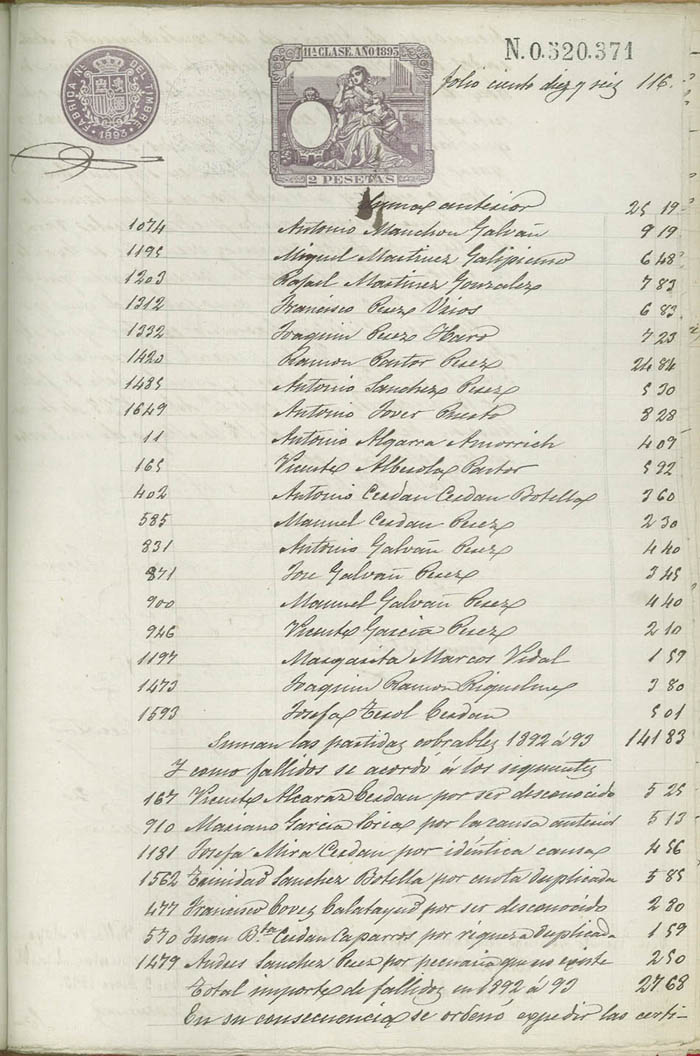 FABRICA NL. DEL TIMBRE
1893
11ª CLASE. AÑO 1893
2 PESETAS
N.0.520.371
folio ciento diez y seis 116.
Suma anterior 25 19
1074 Antonio Manchon Galvañ 9 19
1195 Miguel Martinez Galipienso 6 48
1203 Rafael Martinez Gonzalez 7 83
1312 Francisco Perez Varos 6 83
1332 Joaquin Perez Haro 7 23
1420 Ramon Pastor Perez 24 84
1485 Antonio Sanchez Perez 5 30
1649 Antonio Jover Puerto 8 28
11 Antonio Algarra Amorrich 4 09
165 Vicente Alberola Pastor 5 92
402 Antonio Cerdan Cerdan Botella 3 60
585 Manuel Cerdan Perez 2 30
831 Antonio Galvañ Perez 4 40
871 Jose Galvañ Perez 3 45
900 Manuel Galvañ Perez 4 40
946 Vicente Garcia Perez 2 10
1197 Margarita Marcos Vidal 1 59
1473 Joaquin Ramon Riquelme 3 80
1593 Josefa Terol Cerdan 5 01
Suman las partidas cobrables 1892 á 93 141 83
Y como fallidos se acordó á los siguientes
167 Vicente Alcaraz Cerdan por ser desconocido 5 25
910 Mariano Garcia Soria por la causa anterior 5 13
1181 Josefa Mira Cerdan por idéntica causa 4 56
1562 Trinidad Sanchez Botella por cuota duplicada 5 85
477 Francisco Coves Calatayud por ser desconocido 2 80
570 Juan Bta. Cerdan Caparros por riqueza duplicada 1 59
1479 Andres Sanchez Perez por pecuaria que no existe 2 50
Total importe de fallidos en 1892 á 93 27 68
En su consecuencia se ordenó expedir las certi-